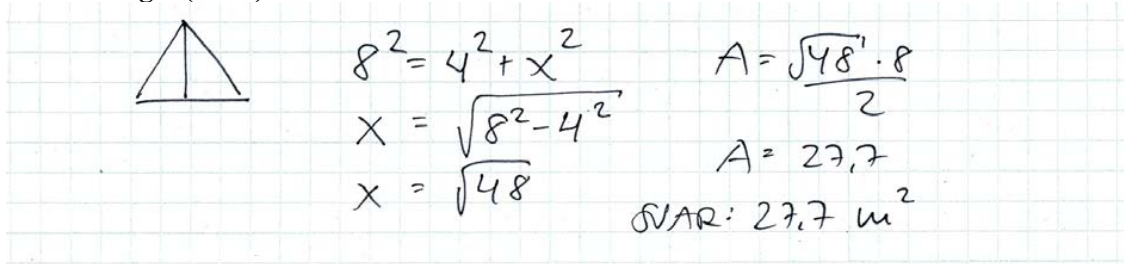 8² = 4² + x²
x = √(8² - 4²)
x = √48
A = (√48 · 8)/2
A = 27,7
SVAR: 27,7 m²